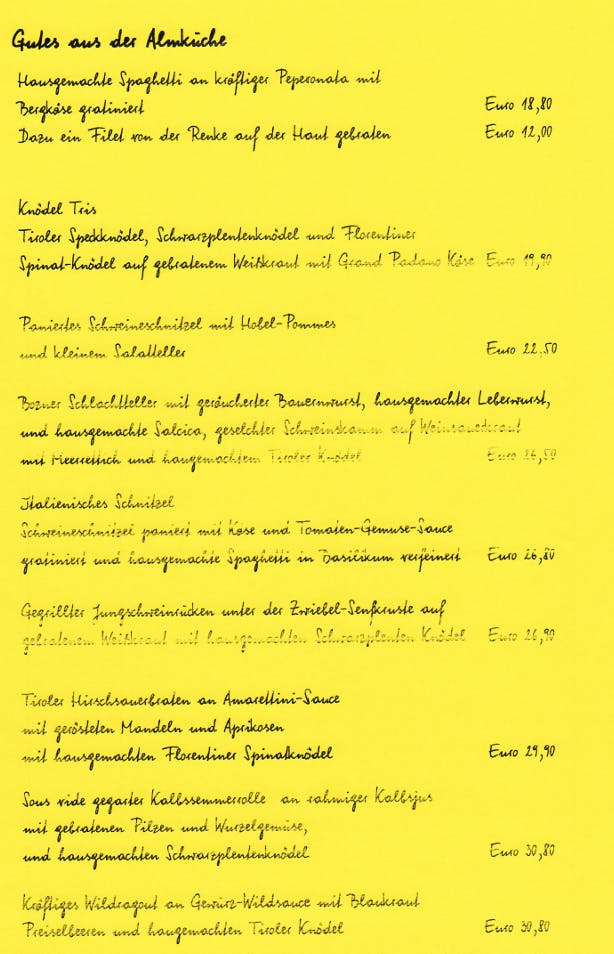 Gutes aus der Almküche
Hausgemachte Spaghetti an kräftiger Peperonata mit
Bergkäse gratiniert Euro 18,80
Dazu ein Filet von der Renke auf der Haut gebraten Euro 12,00
Knödel Tris
Tiroler Speckknödel, Schwarzplentenknödel und Florentiner
Spinat-Knödel auf gebratenem Weißkraut mit Grand Padano Käse Euro 19,90
Paniertes Schweineschnitzel mit Hobel-Pommes
und kleinem Salatteller Euro 22,50
Bozner Schlachtteller mit geräucherter Bauernwurst, hausgemachter Leberwurst,
und hausgemachte Salcica, geselchter Schweinskamm auf Weinsauerkraut
mit Meerrettich und haugemachtem Tiroler Knödel Euro 26,50
Italienisches Schnitzel
Schweineschnitzel paniert mit Käse und Tomaten-Gemüse-Sauce
gratiniert und hausgemachte Spaghetti in Basilikum verfeinert Euro 26,80
Gegrillter Jungschweinrücken unter der Zwiebel-Senfkruste auf
gebratenem Weißkraut mit hausgemachten Schwarzplenten Knödel Euro 26,90
Tiroler Hirschsauerbraten an Amarettini-Sauce
mit gerösteten Mandeln und Aprikosen
mit hausgemachten Florentiner Spinatknödel Euro 29,90
Sous vide gegarter Kalbssemmerrolle an rahmiger Kalbsjus
mit gebratenen Pilzen und Wurzelgemüse,
und hausgemachten Schwarzplentenknödel Euro 30,80
Kräftiges Wildragout an Gewürz-Wildsauce mit Blaukraut
Preiselbeeren und haugemachten Tiroler Knödel Euro 30,80